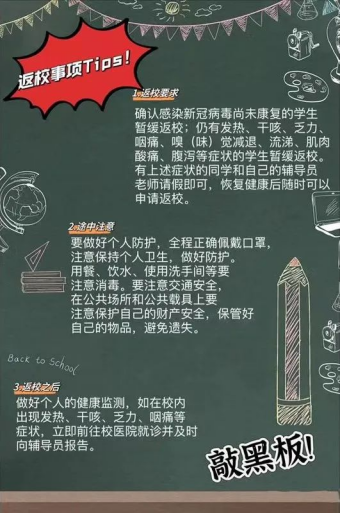 返校事项Tips!
1.返校要求
确认感染新冠病毒尚未康复的学生
暂缓返校；仍有发热、干咳、乏力、
咽痛、嗅（味）觉减退、流涕、肌肉
酸痛、腹泻等症状的学生暂缓返校。
有上述症状的同学和自己的辅导员
老师请假即可，恢复健康后随时可以
申请返校。
2.途中注意
要做好个人防护，全程正确佩戴口罩，
注意保持个人卫生，做好防护。
用餐、饮水、使用洗手间等要
注意消毒。要注意交通安全，
在公共场所和公共载具上要
注意保护自己的财产安全，保管好
自己的物品，避免遗失。
Back to School
3.返校之后
做好个人的健康监测，如在校内
出现发热、干咳、乏力、咽痛等
症状，立即前往校医院就诊并及时
向辅导员报告。
敲黑板!